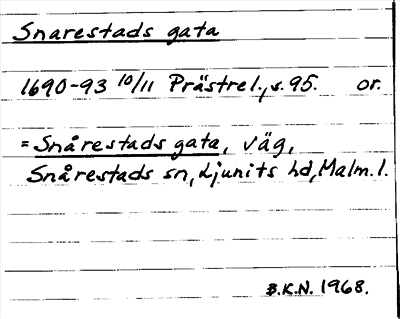 Snarestads gata
1690-93 10/11 Prästrel., s. 95. or.
= Snårestads gata, väg,
Snårestads sn, Ljunits hd, Malm. l.
B.K.N. 1968.